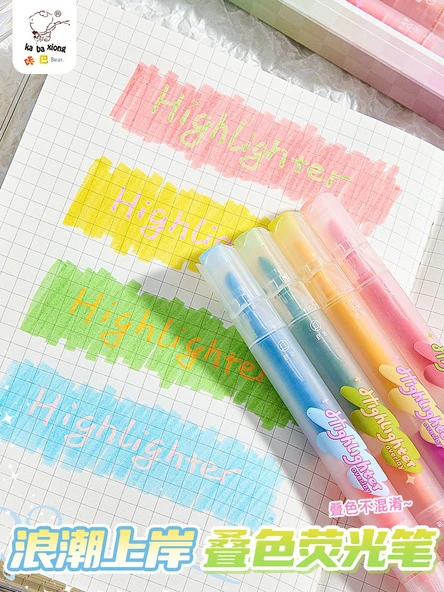 ka ba xiong
咔巴 Bear.
Highlighter
Highli
Highlighter
Highlighter
Highlighter
overlay
Highlighter
overlay
Highlighter
Highlighter
叠色不混淆~
浪潮上岸 叠色荧光笔